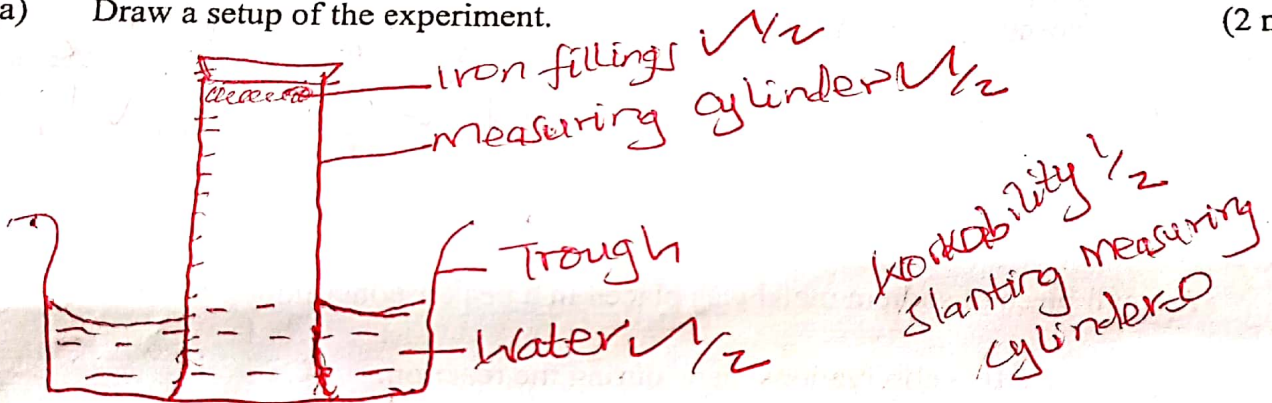 a) Draw a setup of the experiment. (2
Iron fillings ✓1/2
measuring cylinder ✓1/2
Trough
Water ✓1/2
workability 1/2
slanting measuring
cylinder=0